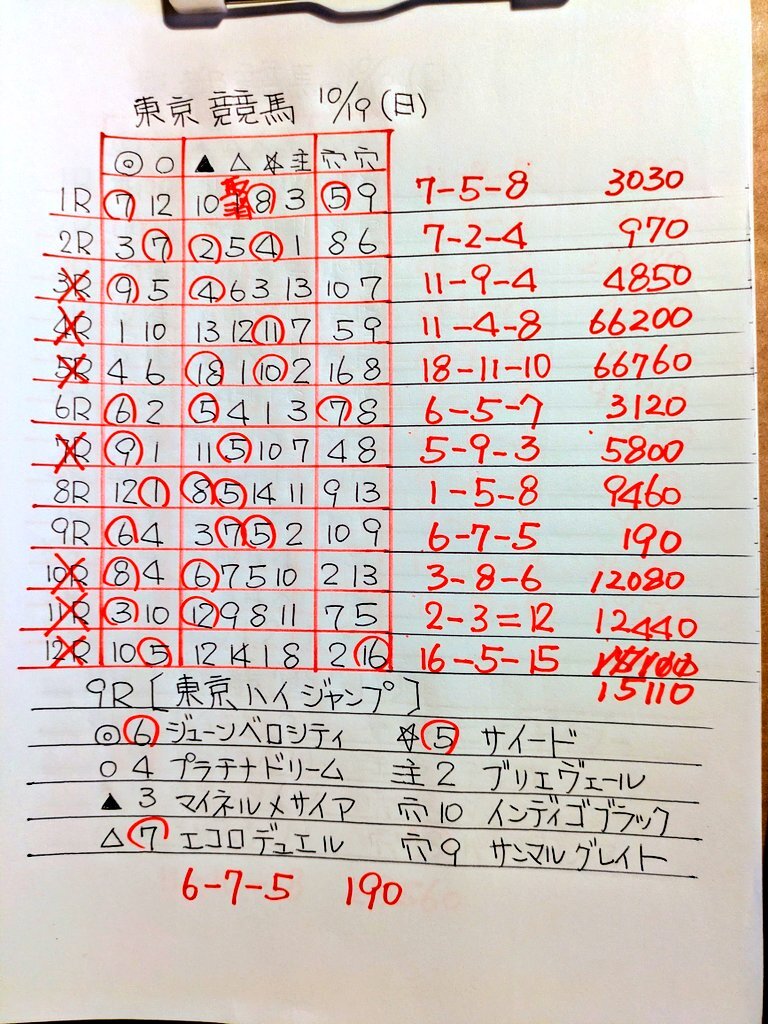 東京競馬 10/19(日)
◎ ○ ▲ △ ☆ 注 穴 穴
1R 7 12 10 8 3 5 9 7-5-8 3030
2R 3 7 2 5 4 1 8 6 7-2-4 970
3R 9 5 4 6 3 13 10 7 11-9-4 4850
4R 1 10 13 12 11 7 5 9 11-4-8 66200
5R 4 6 18 1 10 2 16 8 18-11-10 66760
6R 6 2 5 4 1 3 7 8 6-5-7 3120
7R 9 1 11 5 10 7 4 8 5-9-3 5800
8R 12 1 8 5 14 11 9 13 1-5-8 9460
9R 6 4 3 7 5 2 10 9 6-7-5 190
10R 8 4 6 7 5 10 2 13 3-8-6 12080
11R 3 10 12 9 8 11 7 5 2-3=12 12440
12R 10 5 12 14 1 8 2 16 16-5-15
15110
9R[東京ハイジャンプ]
◎ 6 ジューンベロシティ ☆ 5 サイード
○ 4 プラチナドリーム 注 2 ブリエヴェール
▲ 3 マイネルメサイア 穴 10 インディゴブラック
△ 7 エコロデュエル 穴 9 サンマルグレイト
6-7-5 190